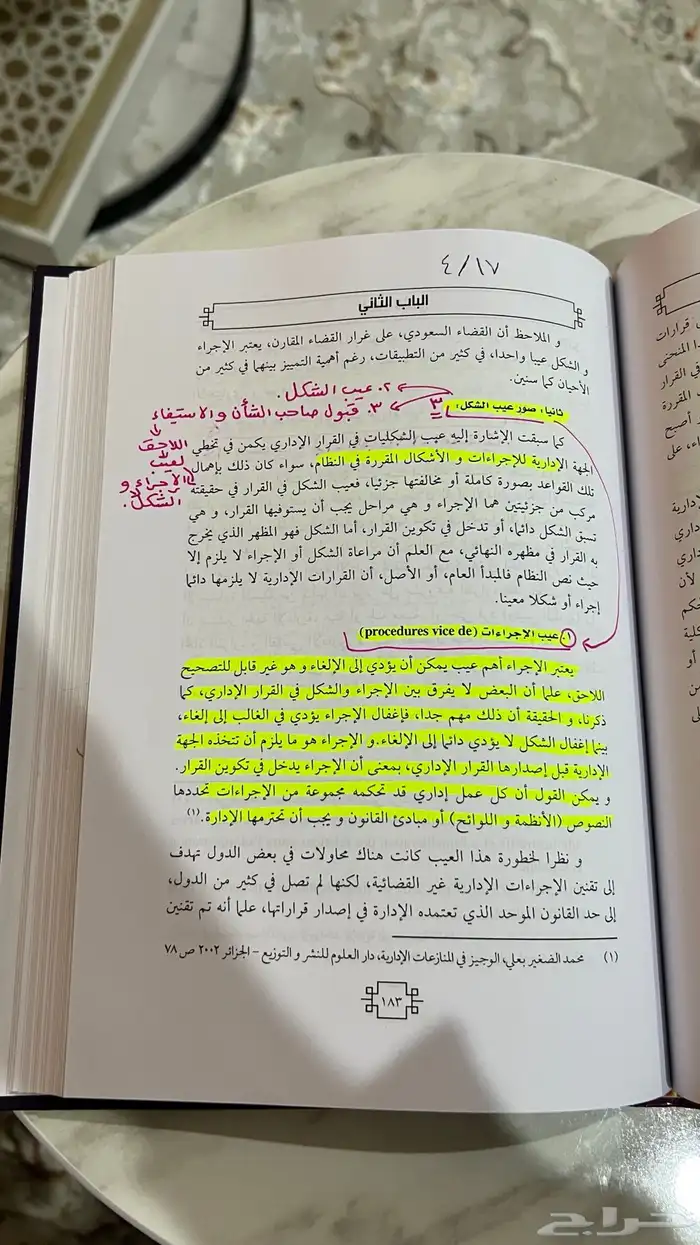 ٤/١٧
الباب الثاني
و الملاحظ أن القضاء السعودي، على غرار القضاء المقارن، يعتبر الإجراء
و الشكل عيبا واحدا، في كثير من التطبيقات، رغم أهمية التمييز بينهما في كثير من
الأحيان كما سنبين.
٢. عيب الشكل.
ثانيا: صور عيب الشكل:
٣
٣. قبول صاحب الشأن و الاستيفاء
اللاحق
لعيب
الإجراء و
الشكل.
كما سبقت الإشارة إليه عيب الشكليات في القرار الإداري يكمن في تخطي
الجهة الإدارية للإجراءات و الأشكال المقررة في النظام، سواء كان ذلك بإهمال
تلك القواعد بصورة كاملة أو مخالفتها جزئيا، فعيب الشكل في القرار في حقيقته
مركب من جزئيتين هما الإجراء و هي مراحل يجب أن يستوفيها القرار، و هي
تسبق الشكل دائما، أو تدخل في تكوين القرار، أما الشكل فهو المظهر الذي يخرج
به القرار في مظهره النهائي، مع العلم أن مراعاة الشكل أو الإجراء لا يلزم إلا
حيث نص النظام فالمبدأ العام، أو الأصل، أن القرارات الإدارية لا يلزمها دائما
إجراء أو شكلا معينا.
١. عيب الإجراءات (procedures vice de)
يعتبر الإجراء أهم عيب يمكن أن يؤدي إلى الإلغاء و هو غير قابل للتصحيح
اللاحق، علما أن البعض لا يفرق بين الإجراء والشكل في القرار الإداري، كما
ذكرنا، و الحقيقة أن ذلك مهم جدا، فإغفال الإجراء يؤدي في الغالب إلى إلغاء،
بينما إغفال الشكل لا يؤدي دائما إلى الإلغاء.و الإجراء هو ما يلزم أن تتخذه الجهة
الإدارية قبل إصدارها القرار الإداري، بمعنى أن الإجراء يدخل في تكوين القرار.
و يمكن القول أن كل عمل إداري قد تحكمه مجموعة من الإجراءات تحددها
النصوص (الأنظمة و اللوائح) أو مبادئ القانون و يجب أن تحترمها الإدارة.(١)
و نظرا لخطورة هذا العيب كانت هناك محاولات في بعض الدول تهدف
إلى تقنين الإجراءات الإدارية غير القضائية، لكنها لم تصل في كثير من الدول،
إلى حد القانون الموحد الذي تعتمده الإدارة في إصدار قراراتها، علما أنه تم تقنين
(١) محمد الصغير بعلي، الوجيز في المنازعات الإدارية، دار العلوم للنشر و التوزيع – الجزائر ٢٠٠٢ ص ٧٨
١٨٣
حراج